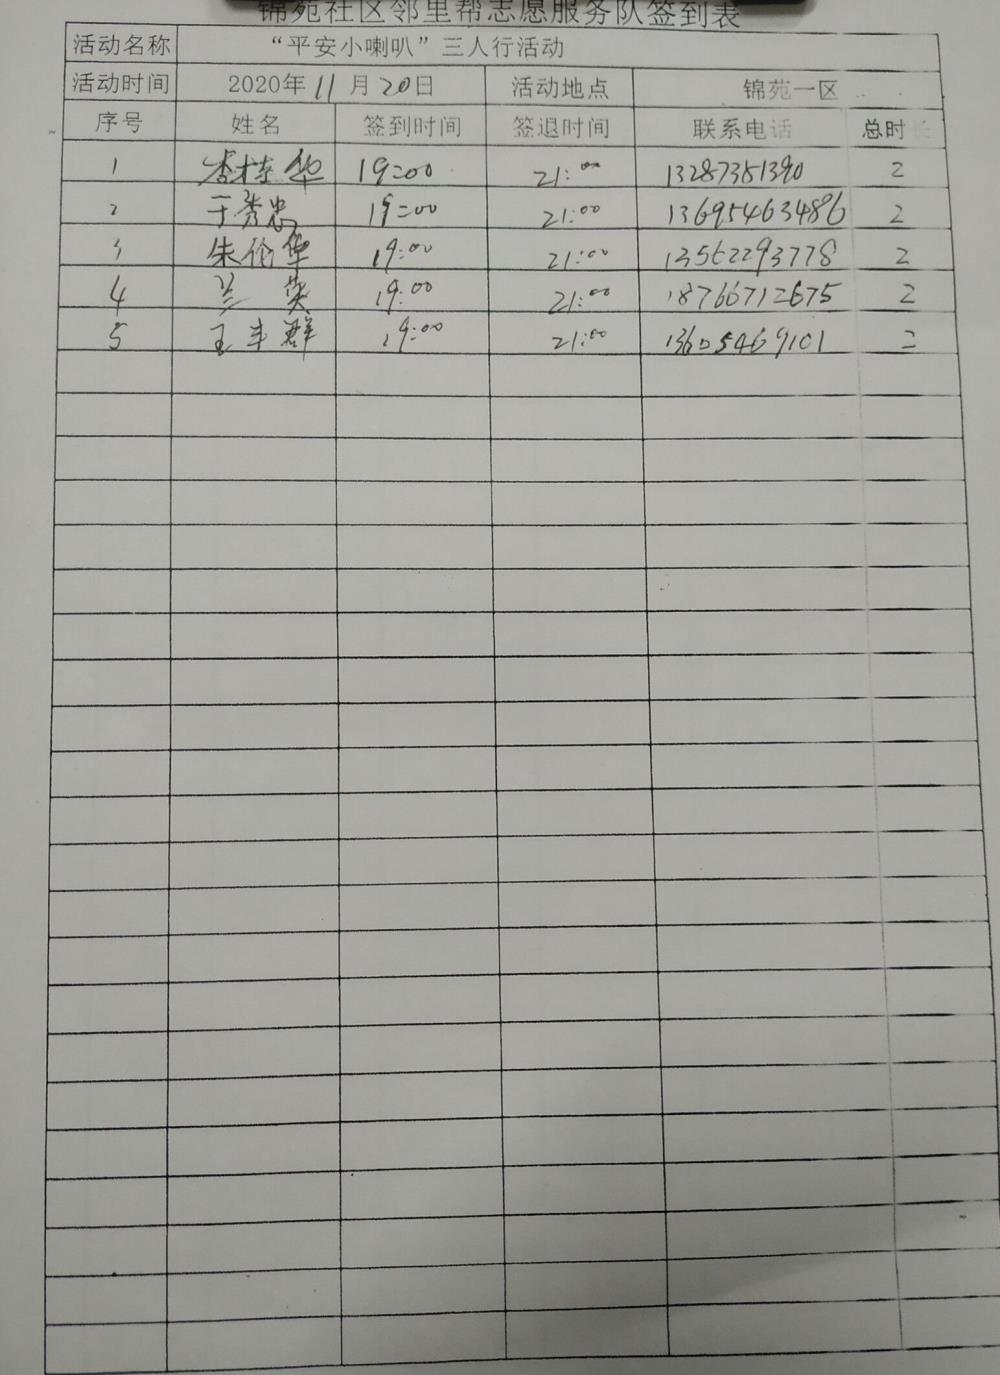 锦苑社区邻里帮志愿服务队签到表
活动名称 “平安小喇叭”三人行活动
活动时间 2020年11月20日 活动地点 锦苑一区
序号 姓名 签到时间 签退时间 联系电话 总时长
1 李桂华 19:00 21:00 13287351390 2
2 于秀忠 19:00 21:00 13695463486 2
3 朱伦华 19:00 21:00 13562293778 2
4 兰英 19:00 21:00 18766712675 2
5 王丰群 19:00 21:00 13605469101 2